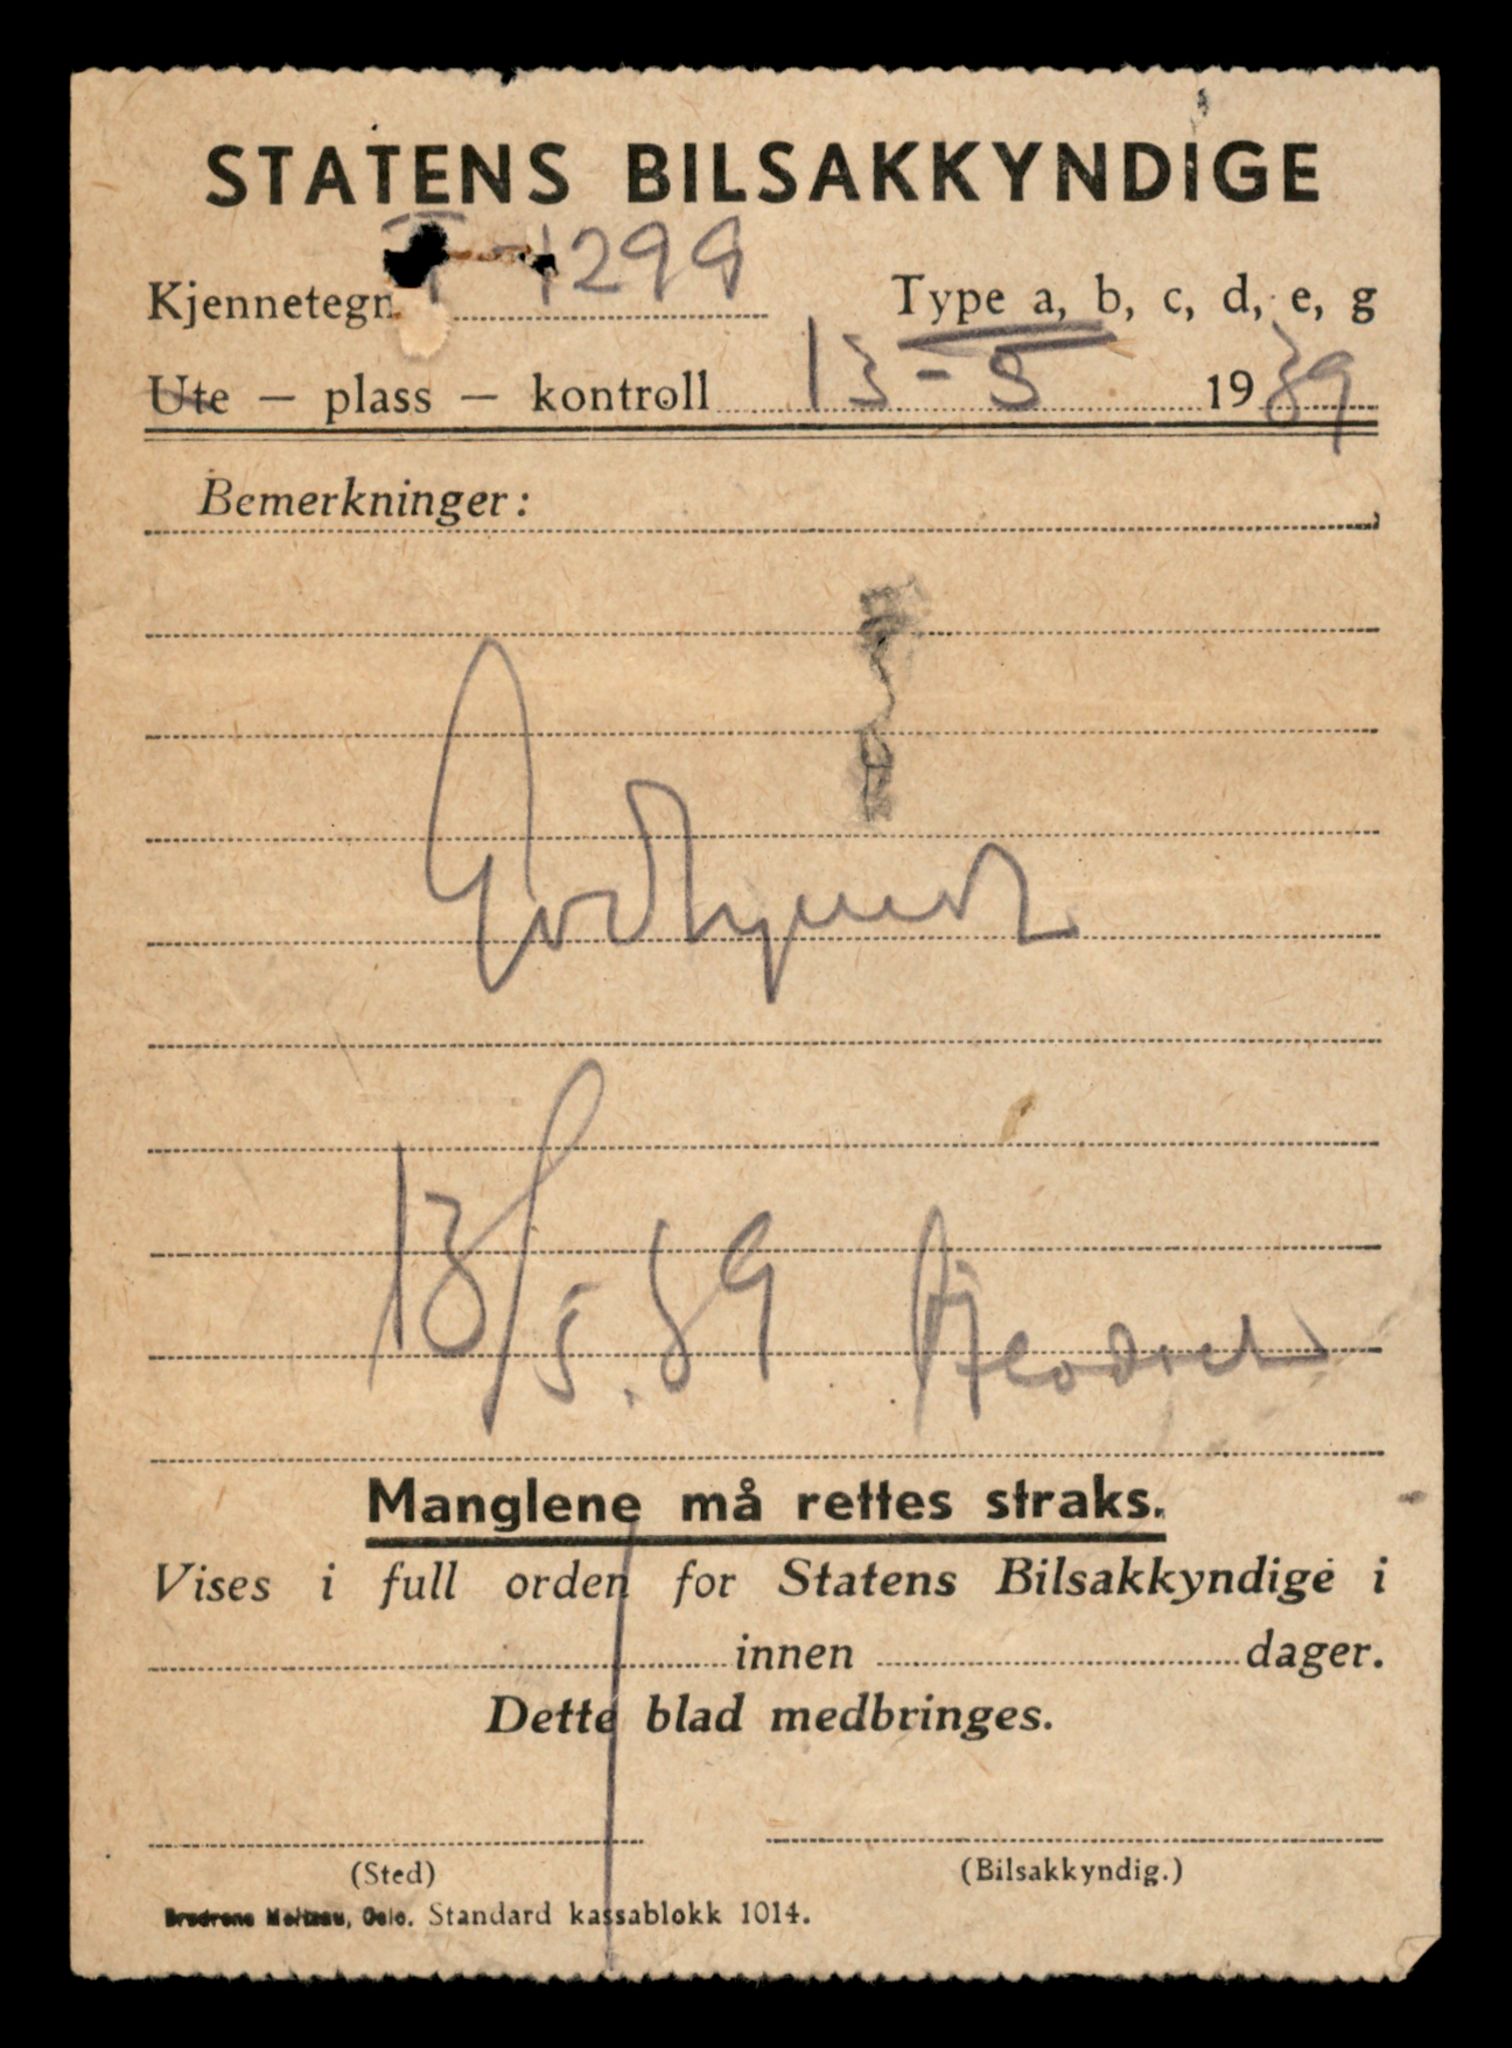 STATENS BILSAKKYNDIGE
Kjennetegn T-1299 Type a, b, c, d, e, g
Ute — plass — kontroll 13-5 1939
Bemerkninger:
Godkjent
13/5.39
Manglene må rettes straks.
Vises i full orden for Statens Bilsakkyndige i
innen dager.
Dette blad medbringes.
(Sted) (Bilsakkyndig.)
Brødrene Meltzau, Oslo. Standard kassablokk 1014.